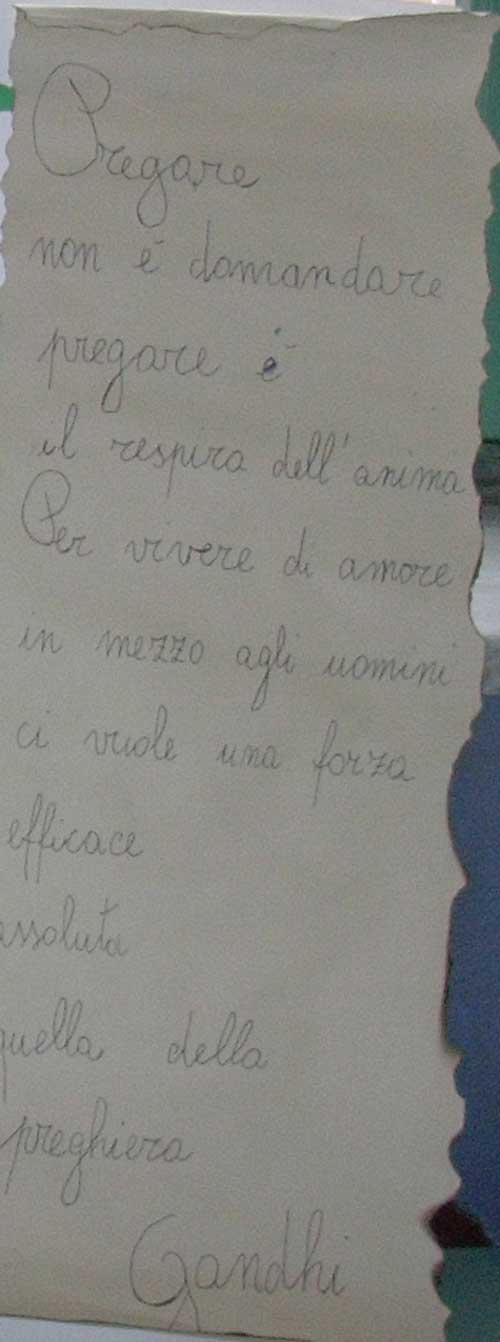 Pregare
non è domandare
pregare è
il respiro dell'anima
Per vivere di amore
in mezzo agli uomini
ci vuole una forza
efficace
assoluta
quella della
preghiera
Gandhi